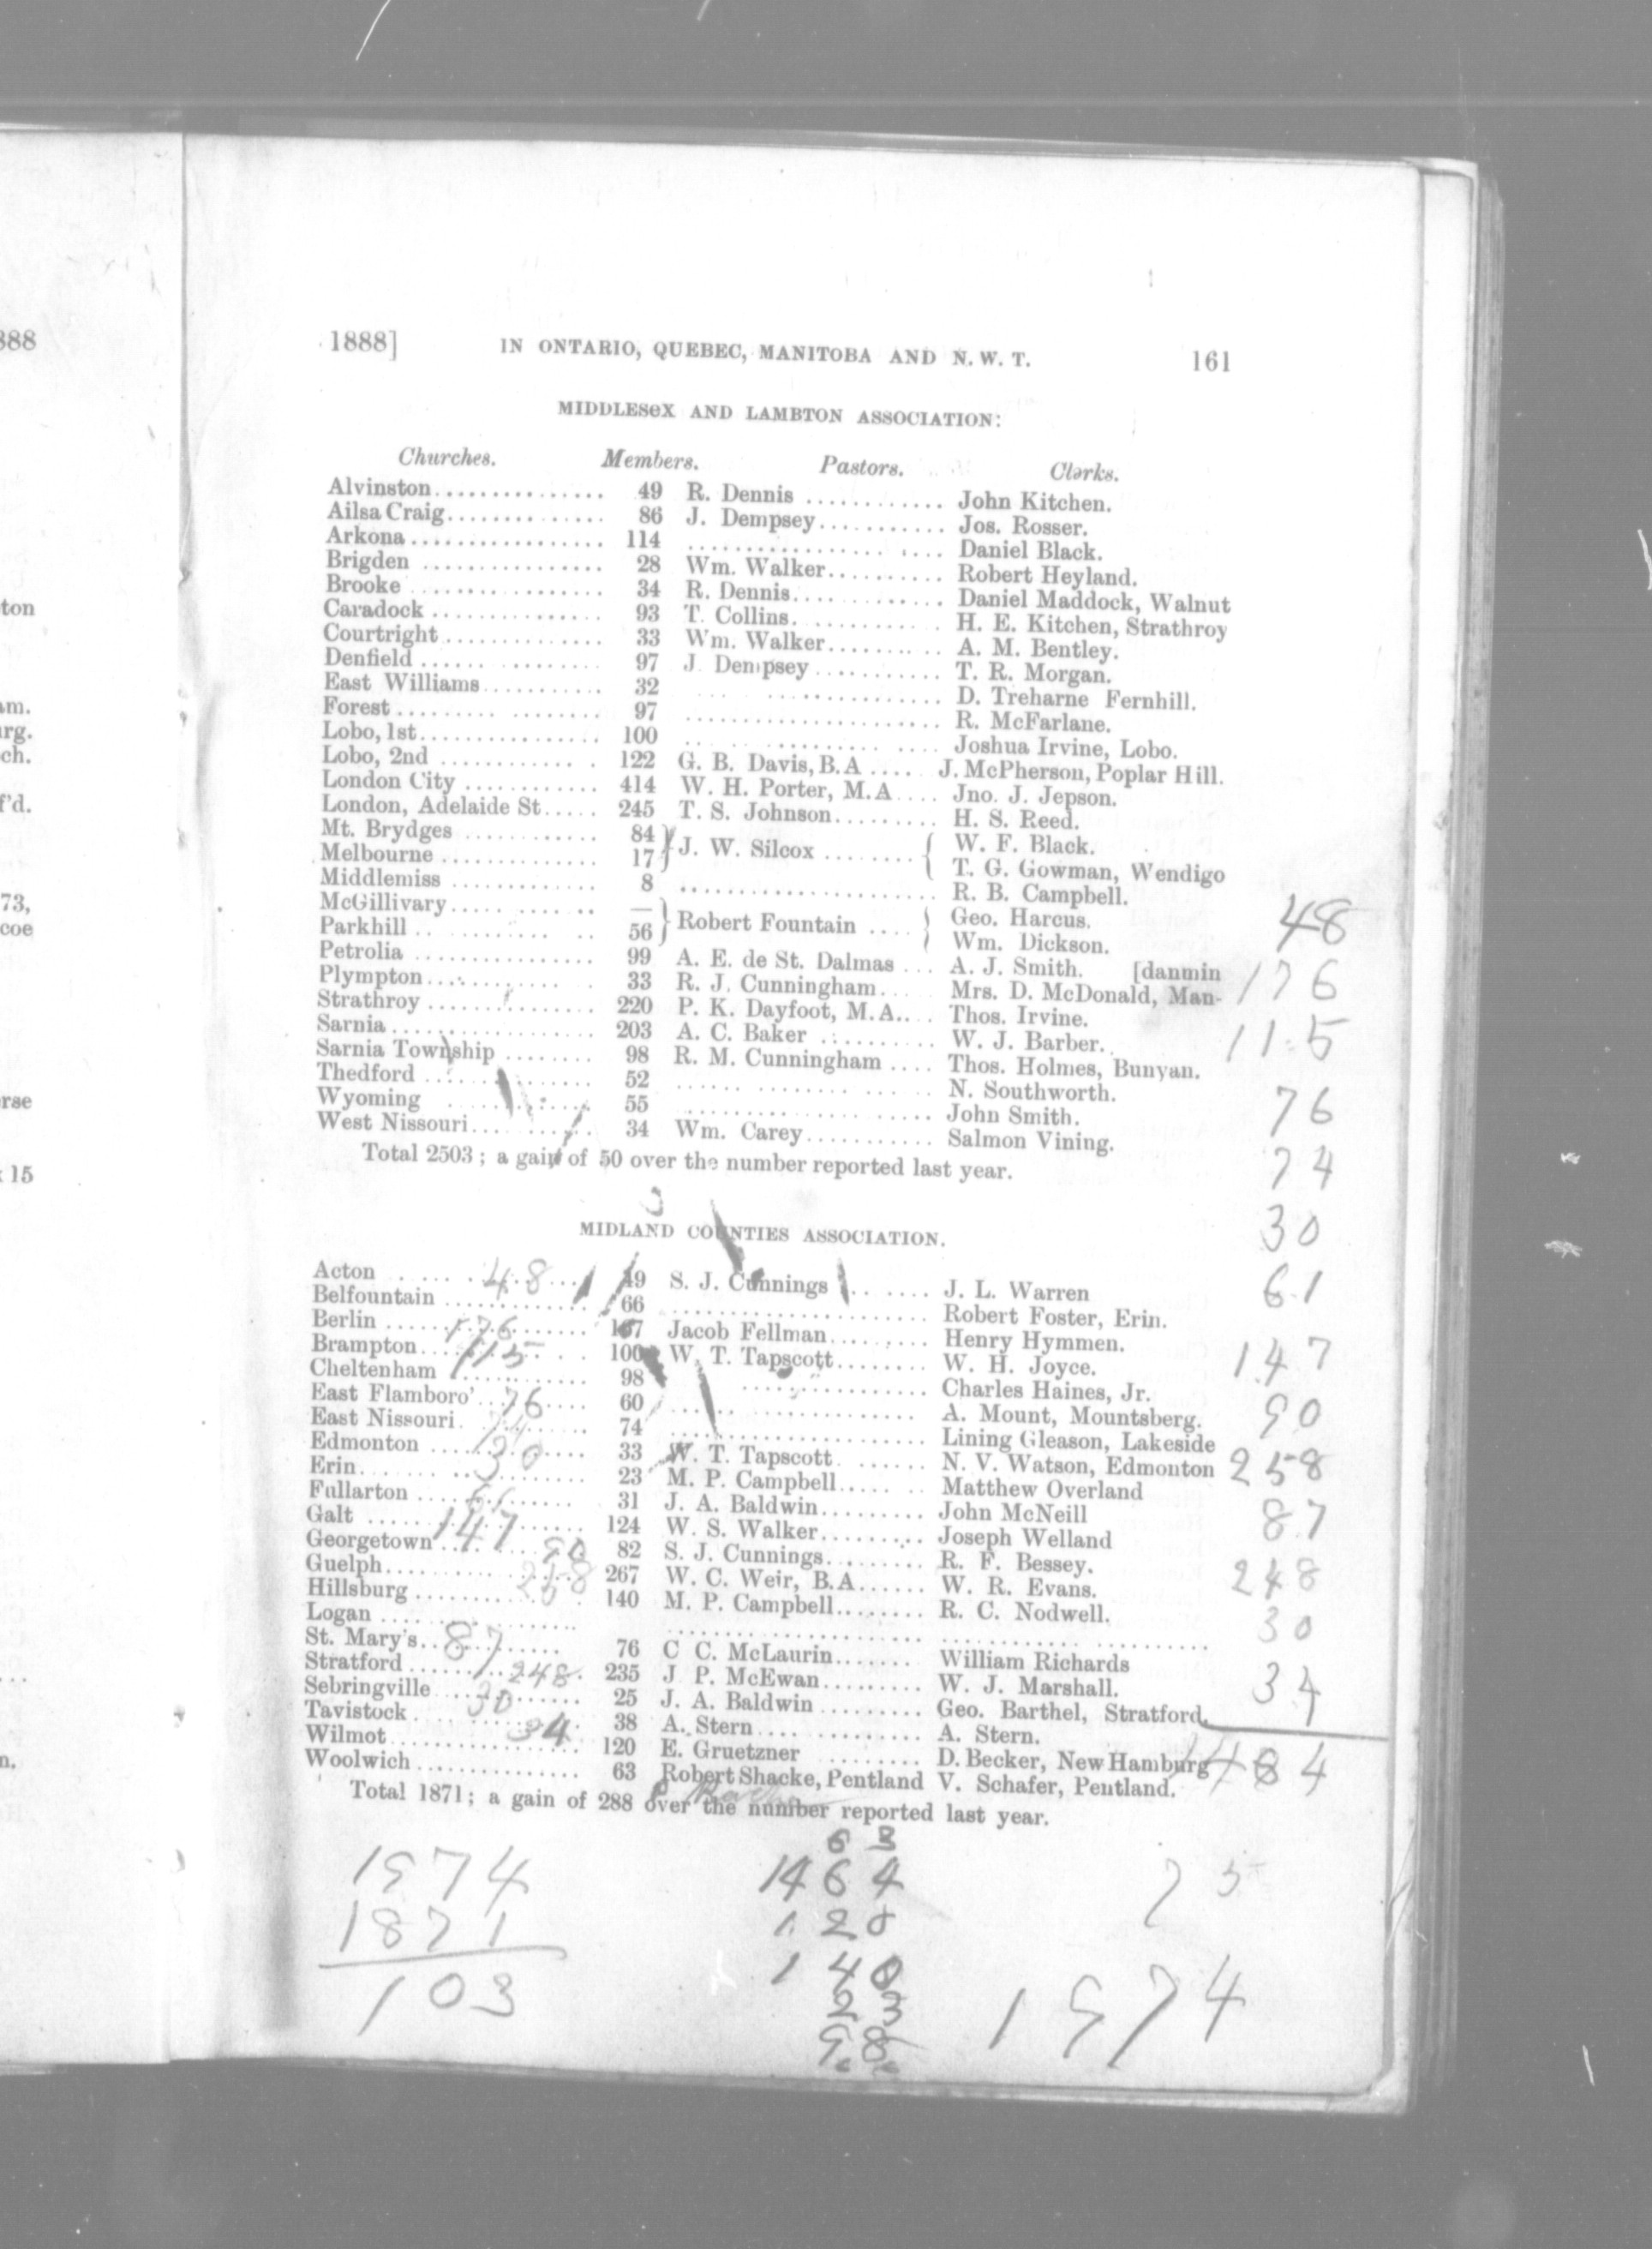 888
ton
am.
urg.
ch.
f'd.
73,
coe
rse
15
n.
1888] IN ONTARIO, QUEBEC, MANITOBA AND N. W. T. 161
MIDDLESeX AND LAMBTON ASSOCIATION:
Churches. Members. Pastors. Clerks.
Alvinston............... 49 R. Dennis ........... John Kitchen.
Ailsa Craig.............. 86 J. Dempsey........... Jos. Rosser.
Arkona ................. 114 .................... Daniel Black.
Brigden ................ 28 Wm. Walker.......... Robert Heyland.
Brooke ................. 34 R. Dennis............. Daniel Maddock, Walnut
Caradock ............... 93 T. Collins............. H. E. Kitchen, Strathroy
Courtright .............. 33 Wm. Walker.......... A. M. Bentley.
Denfield ................ 97 J. Dempsey........... T. R. Morgan.
East Williams........... 32 .................... D. Treharne Fernhill.
Forest .................. 97 ...................... R. McFarlane.
Lobo, 1st................ 100 .................... Joshua Irvine, Lobo.
Lobo, 2nd .............. 122 G. B. Davis, B.A .... J. McPherson, Poplar Hill.
London City ............ 414 W. H. Porter, M.A.... Jno. J. Jepson.
London, Adelaide St..... 245 T. S. Johnson......... H. S. Reed.
Mt. Brydges ............ 84 } J. W. Silcox ........ { W. F. Black.
Melbourne .............. 17 } T. G. Gowman, Wendigo
Middlemiss ............. 8 ...................... R. B. Campbell.
McGillivary............. — } Robert Fountain .... } Geo. Harcus.
Parkhill ................ 56 } Wm. Dickson.
Petrolia ................ 99 A. E. de St. Dalmas ... A. J. Smith. [danmin
Plympton............... 33 R. J. Cunningham..... Mrs. D. McDonald, Man-
Strathroy ............... 220 P. K. Dayfoot, M.A.... Thos. Irvine.
Sarnia .................. 203 A. C. Baker .......... W. J. Barber.
Sarnia Township ........ 98 R. M. Cunningham .... Thos. Holmes, Bunyan.
Thedford ............... 52 .................... N. Southworth.
Wyoming .............. 55 ...................... John Smith.
West Nissouri........... 34 Wm. Carey........... Salmon Vining.
Total 2503 ; a gain of 50 over the number reported last year.
3
MIDLAND COUNTIES ASSOCIATION.
Acton ..... 48 ..... 49 S. J. Cunnings ....... J. L. Warren
Belfountain ............. 66 ...................... Robert Foster, Erin.
Berlin ..... 176 ....... 167 Jacob Fellman......... Henry Hymmen.
Brampton.... 115 .... 100 W. T. Tapscott........ W. H. Joyce.
Cheltenham ............ 98 ................ Charles Haines, Jr.
East Flamboro'.. 76 .... 60 ...................... A. Mount, Mountsberg.
East Nissouri. 74 ...... 74 ...................... Lining Gleason, Lakeside
Edmonton .... 30 ..... 33 W. T. Tapscott ....... N. V. Watson, Edmonton
Erin.................... 23 M. P. Campbell....... Matthew Overland
Fullarton .... 61 ...... 31 J. A. Baldwin......... John McNeill
Galt ...... 147 ....... 124 W. S. Walker......... Joseph Welland
Georgetown .... 90 82 S. J. Cunnings......... R. F. Bessey.
Guelph........ 258 267 W. C. Weir, B.A...... W. R. Evans.
Hillsburg ............... 140 M. P. Campbell........ R. C. Nodwell.
Logan .................. ...................... ......................
St. Mary's.. 87 ....... 76 C C. McLaurin....... William Richards
Stratford ....... 248. 235 J P. McEwan......... W. J. Marshall.
Sebringville .... 30 ..... 25 J. A. Baldwin ......... Geo. Barthel, Stratford.
Tavistock ....... 34 38 A. Stern ............. A. Stern.
Wilmot.................. 120 E. Gruetzner ........ D. Becker, New Hamburg
Woolwich ............... 63 Robert Shacke, Pentland V. Schafer, Pentland.
Total 1871; a gain of 288 over the number reported last year.
48
176
115
76
74
30
61
147
90
258
87
248
30
34
1484
1974
1871
103
63
1464
120
140
23
98
75
1974